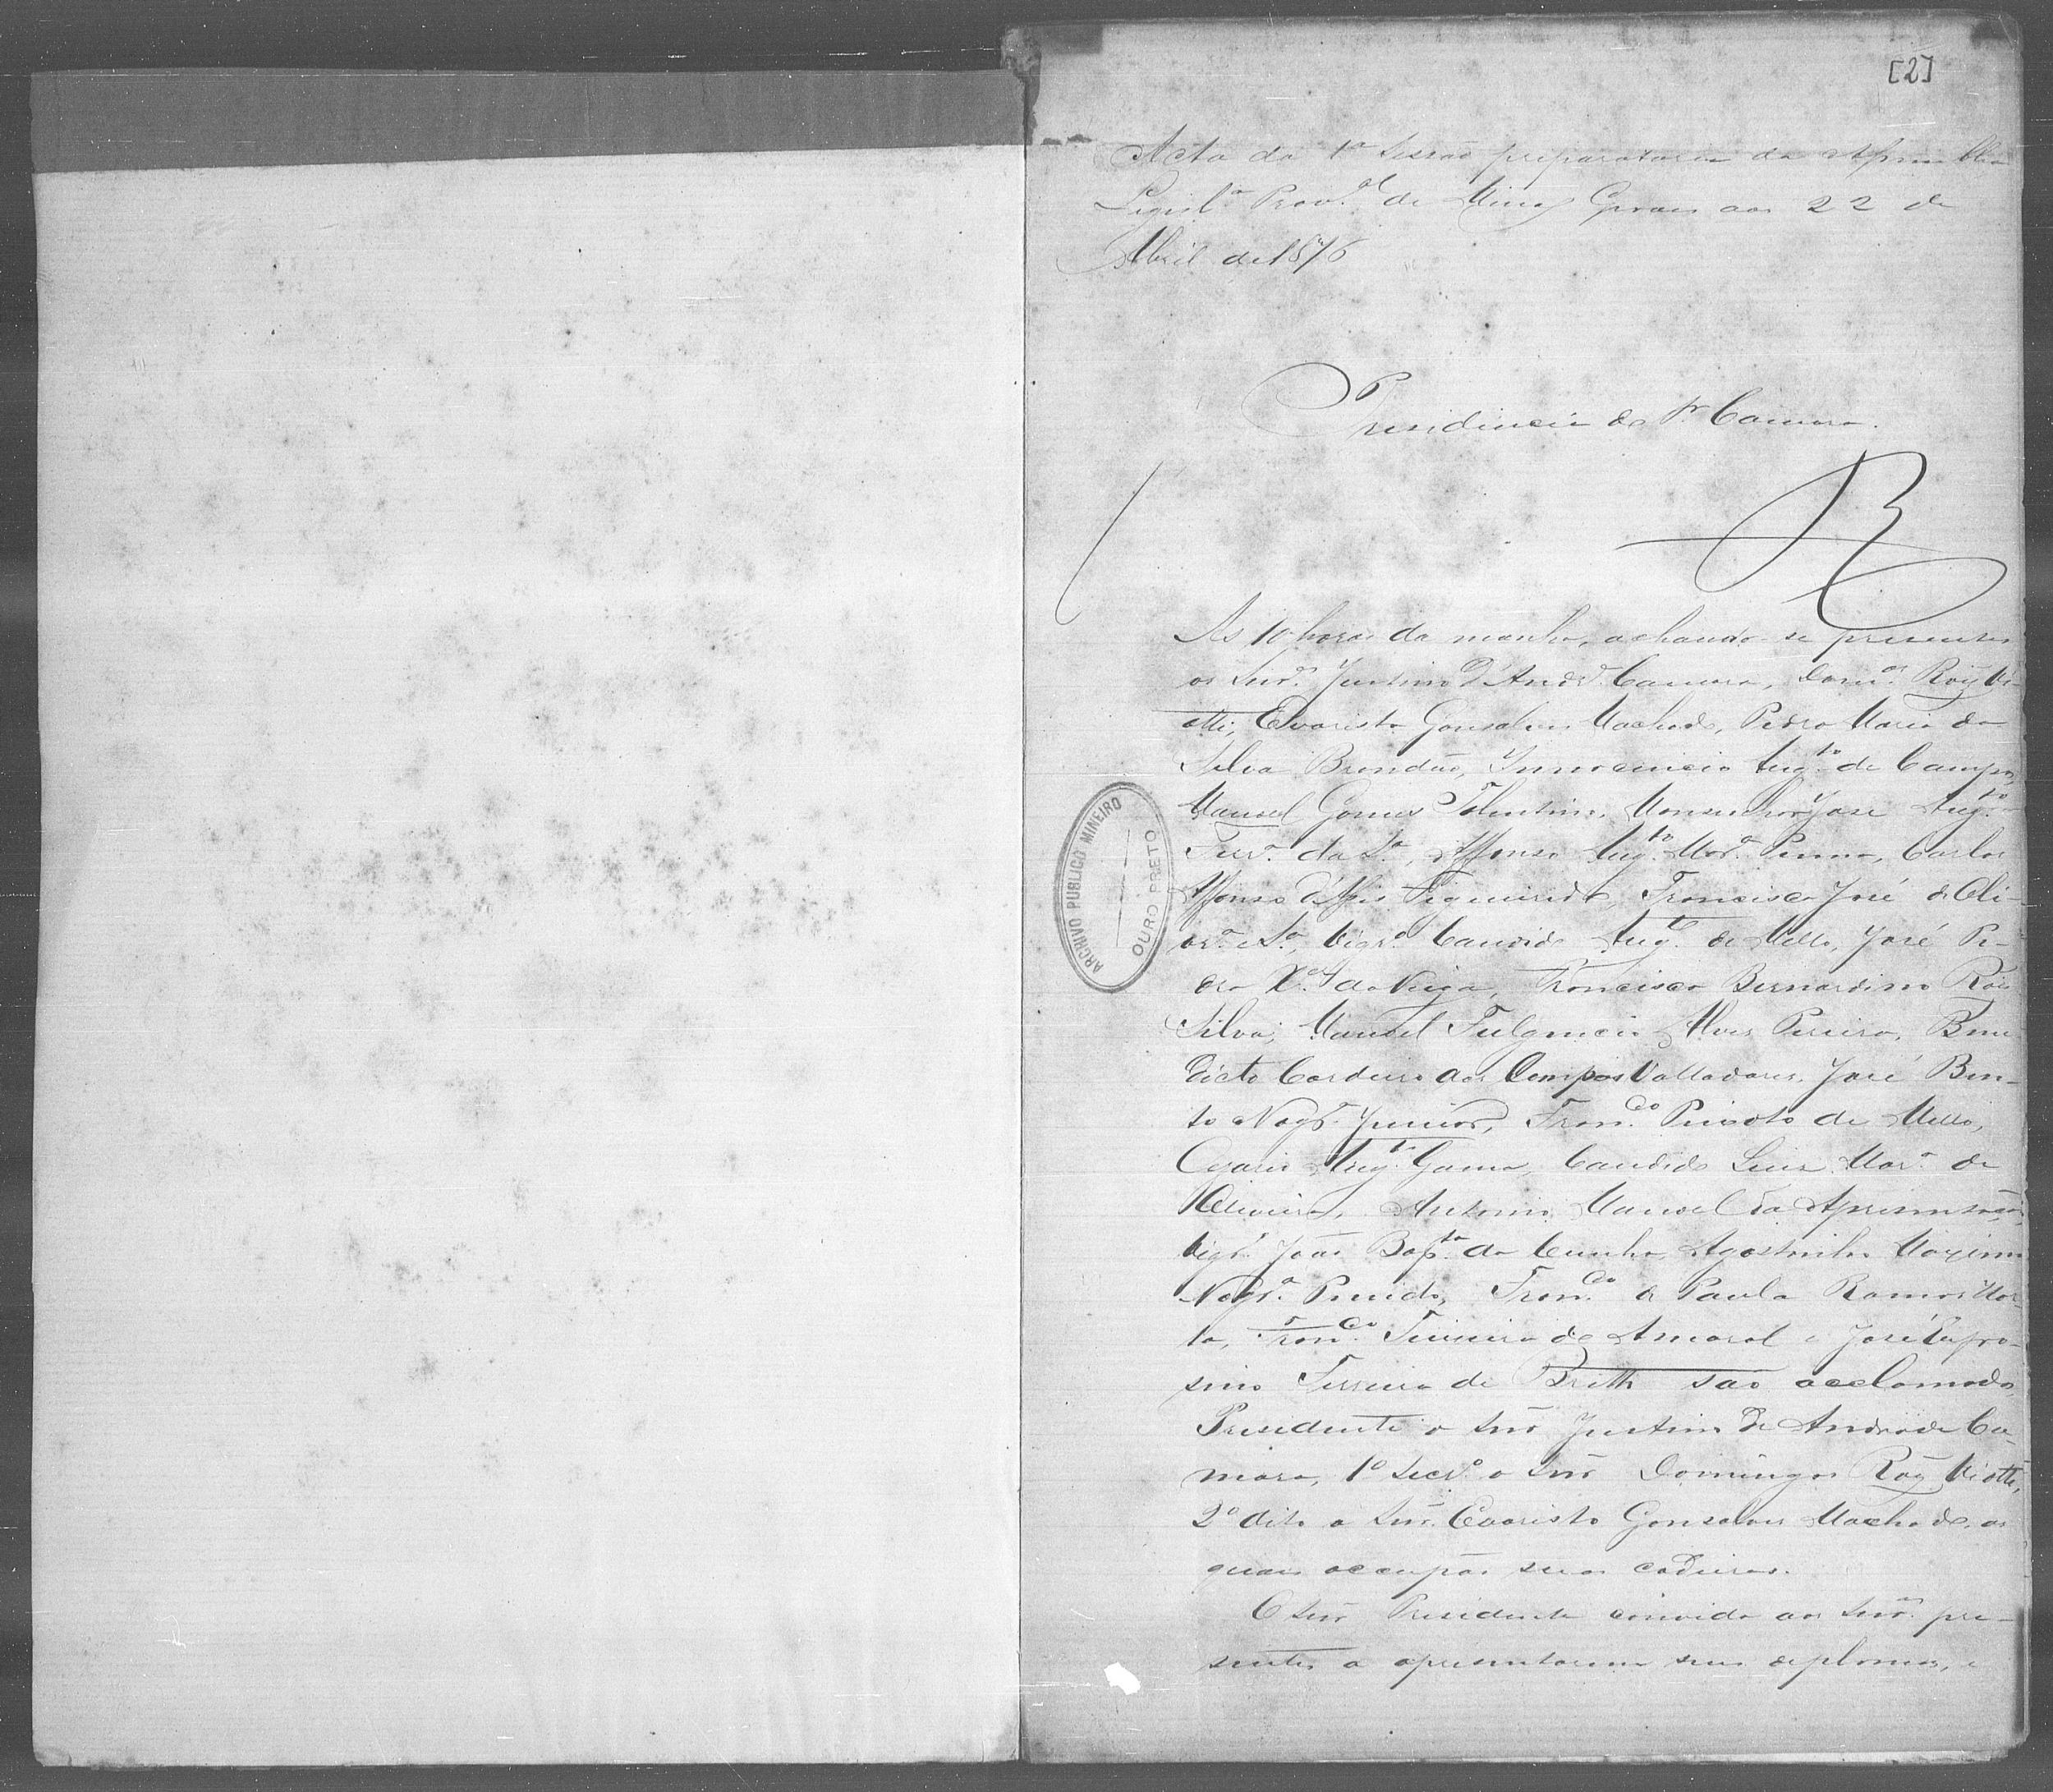 [2]
Acta da 1ª Sessão preparatoria da Assemblea
Legisl.ª Prov.al de Minas Geraes aos 22 de
Abril de 1876
Presidencia do Sr. Camara.
As 10 horas da manhã, achando-se presentes
os Snr.es Justino d'Andr.e Camara, Dom.os Roiz Vi-
otti, Evaristo Gonsalves Machado, Pedro Maria da
Silva Brandão, Innocencio Aug.to de Campos,
Manoel Gomes Tolentino, Monsenhor José Aug.to
Ferr.ª da S.ª, Affonso Aug.to Mor.ª Penna, Carlos
Affonso d'Assis Figueiredo, Francisco José de Oli-
vr.ª e S.ª, Vigr.º Candido Aug.to de Mello, José Pe-
dro X.er da Veiga, Francisco Bernardino Roiz
Silva, Manoel Fulgencio Alves Pereira, Bene
dicto Cordeiro dos Campos Valladares, José Ben-
to Nogr.ª Junior, Fran.co Peixoto de Mello,
Cezario Aug.to Gama, Candido Luiz Mar.ª de
Oliveira, Antonio Manoel da Apresentação,
Vigr.º João Bap.ta da Cunha, Agostinho Maximo
Nogr.ª Penido, Fran.co de Paula Ramos Hor-
ta, Fran.co Teixeira do Amaral e José Eufro-
sino Ferreira de Britto são acclamados
Presidente o Snr Justino de Andrade Ca-
mara, 1º Secr.º o Snr Domingos Roiz Viotti,
2º dito o Snr. Evaristo Gonsalves Machado, os
quaes occupão suas cadeiras.
O Snr Presidente convida aos Snr.es pre-
sentes a apresentarem seus diplomas, e
ARCHIVO PUBLICO MINEIRO
OURO PRETO